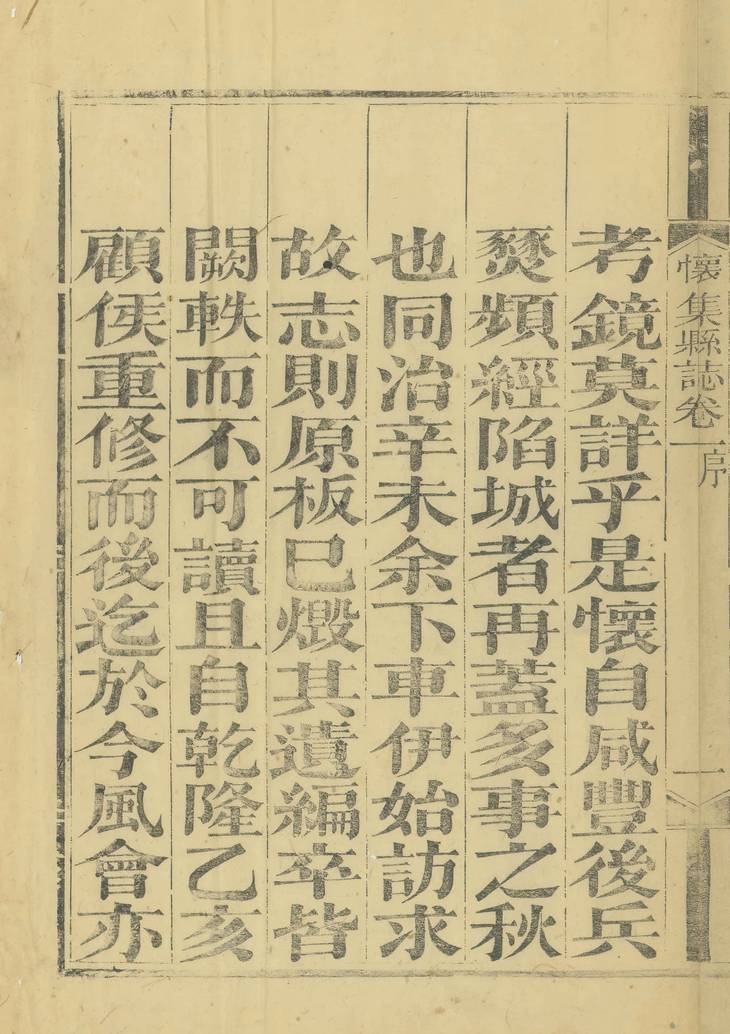 懷集縣誌卷一序
一
考鏡莫詳乎是懷自咸豐後兵
燹頻經陷城者再蓋多事之秋
也同治辛未余下車伊始訪求
故志則原板已燬其遺編卒皆
闕軼而不可讀且自乾隆乙亥
顧侯重修而後迄於今風會亦